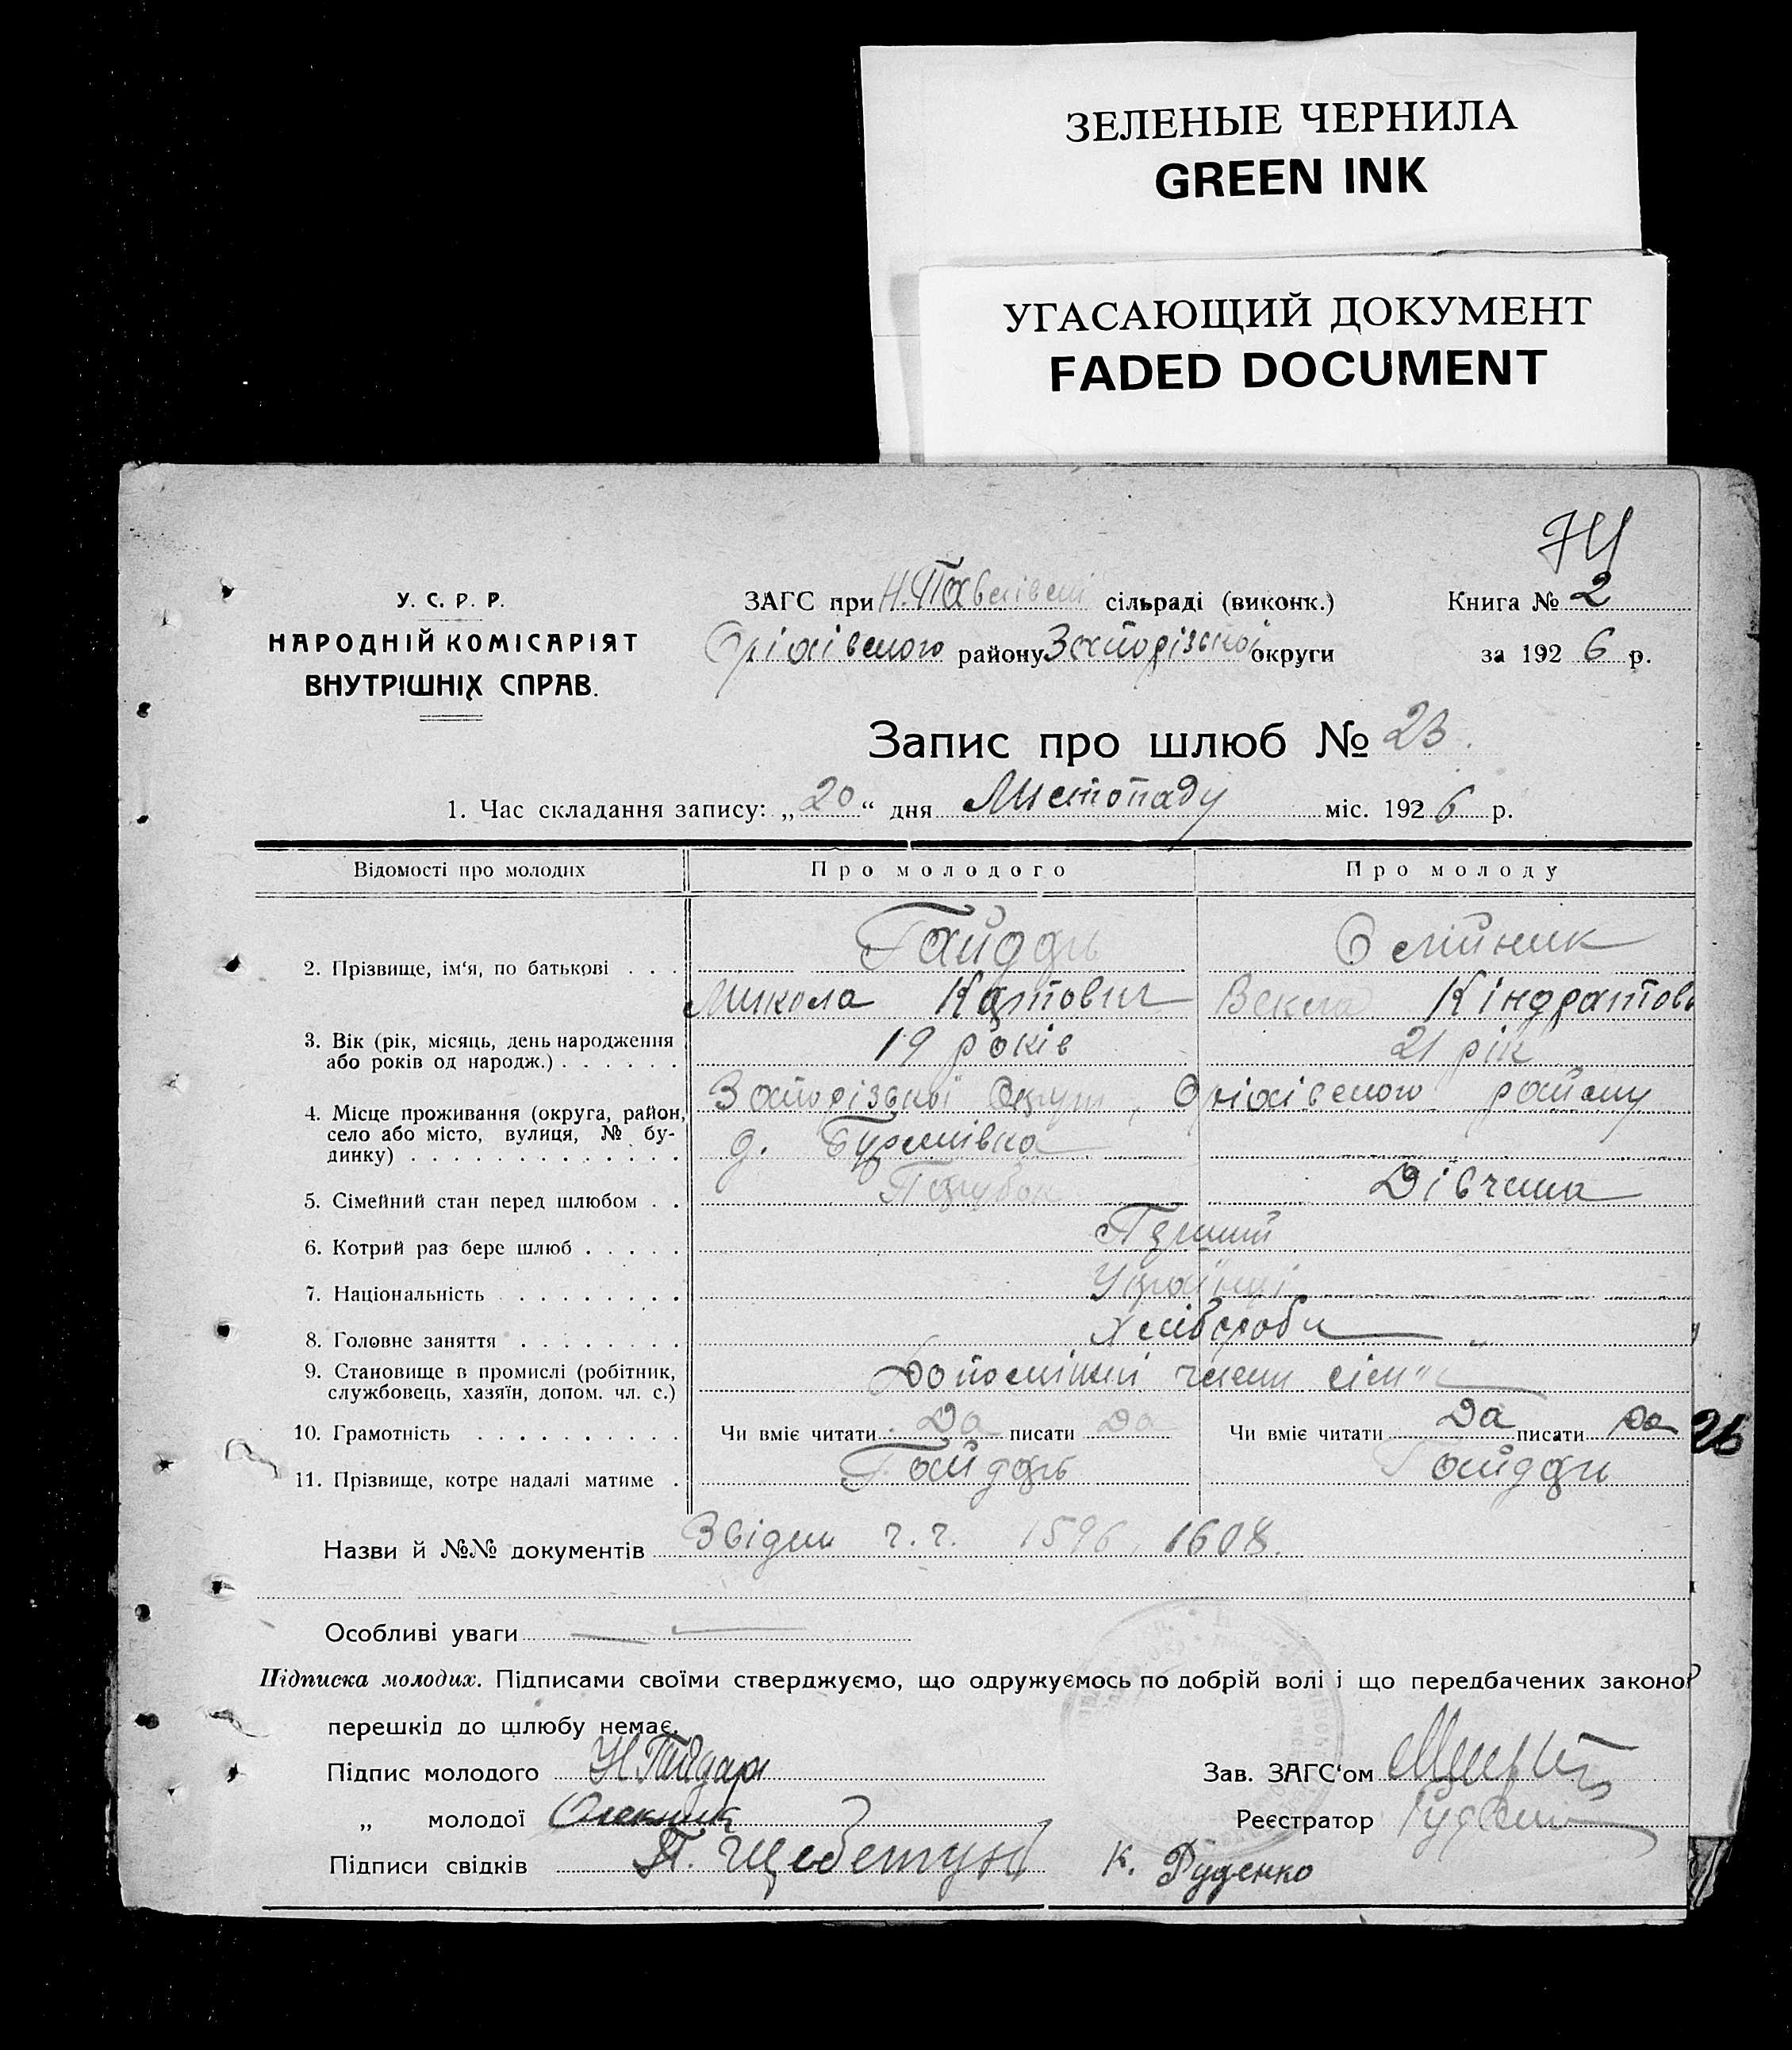 ЗЕЛЕНЫЕ ЧЕРНИЛА
GREEN INK
УГАСАЮЩИЙ ДОКУМЕНТ
FADED DOCUMENT
74
У. С. Р. Р.
НАРОДНІЙ КОМІСАРІЯТ
ВНУТРІШНІХ СПРАВ.
ЗАГС при Н.Павлівській сільраді (виконк.)
Оріхівського району Запорізької округи
Книга № 2
за 1926 р.
Запис про шлюб № 23.
1. Час складання запису: „20“ дня Листопаду міс. 1926 р.
Відомості про молодих Про молодого Про молоду
2. Прізвище, ім'я, по батькові . . . Гайдарь Олійник
Микола Карпович Векла Кіндратов
3. Вік (рік, місяць, день народження або років од народж.) . . . . . . 19 років 21 рік
4. Місце проживання (округа, район, село або місто, вулиця, № будинку) . . . . . . . . . . . . . Запорізької Округи, Оріхівського району
д. Бурлківка
5. Сімейний стан перед шлюбом . . Парубок Дівчина
6. Котрий раз бере шлюб . . . . . Перший
7. Національність . . . . . . . . Українці
8. Головне заняття . . . . . . . . Хлібороби „
9. Становище в промислі (робітник, службовець, хазяїн, допом. чл. с.) Допоміжні члени сім'ї
10. Грамотність . . . . . . . . . . Чи вміє читати Да писати Да Чи вміє читати Да писати Да
26
11. Прізвище, котре надалі матиме . Гайдарь Гайдарь
Назви й №№ документів Звідки ч.ч. 1596, 1608.
Особливі уваги
Підписка молодих. Підписами своїми стверджуємо, що одружуємось по добрій волі і що передбачених законо
перешкід до шлюбу немає.
Підпис молодого Н Гайдарь
Зав. ЗАГС'ом
„ молодої Олекник
Реєстратор
Підписи свідків П. Щебетун К. Руденко